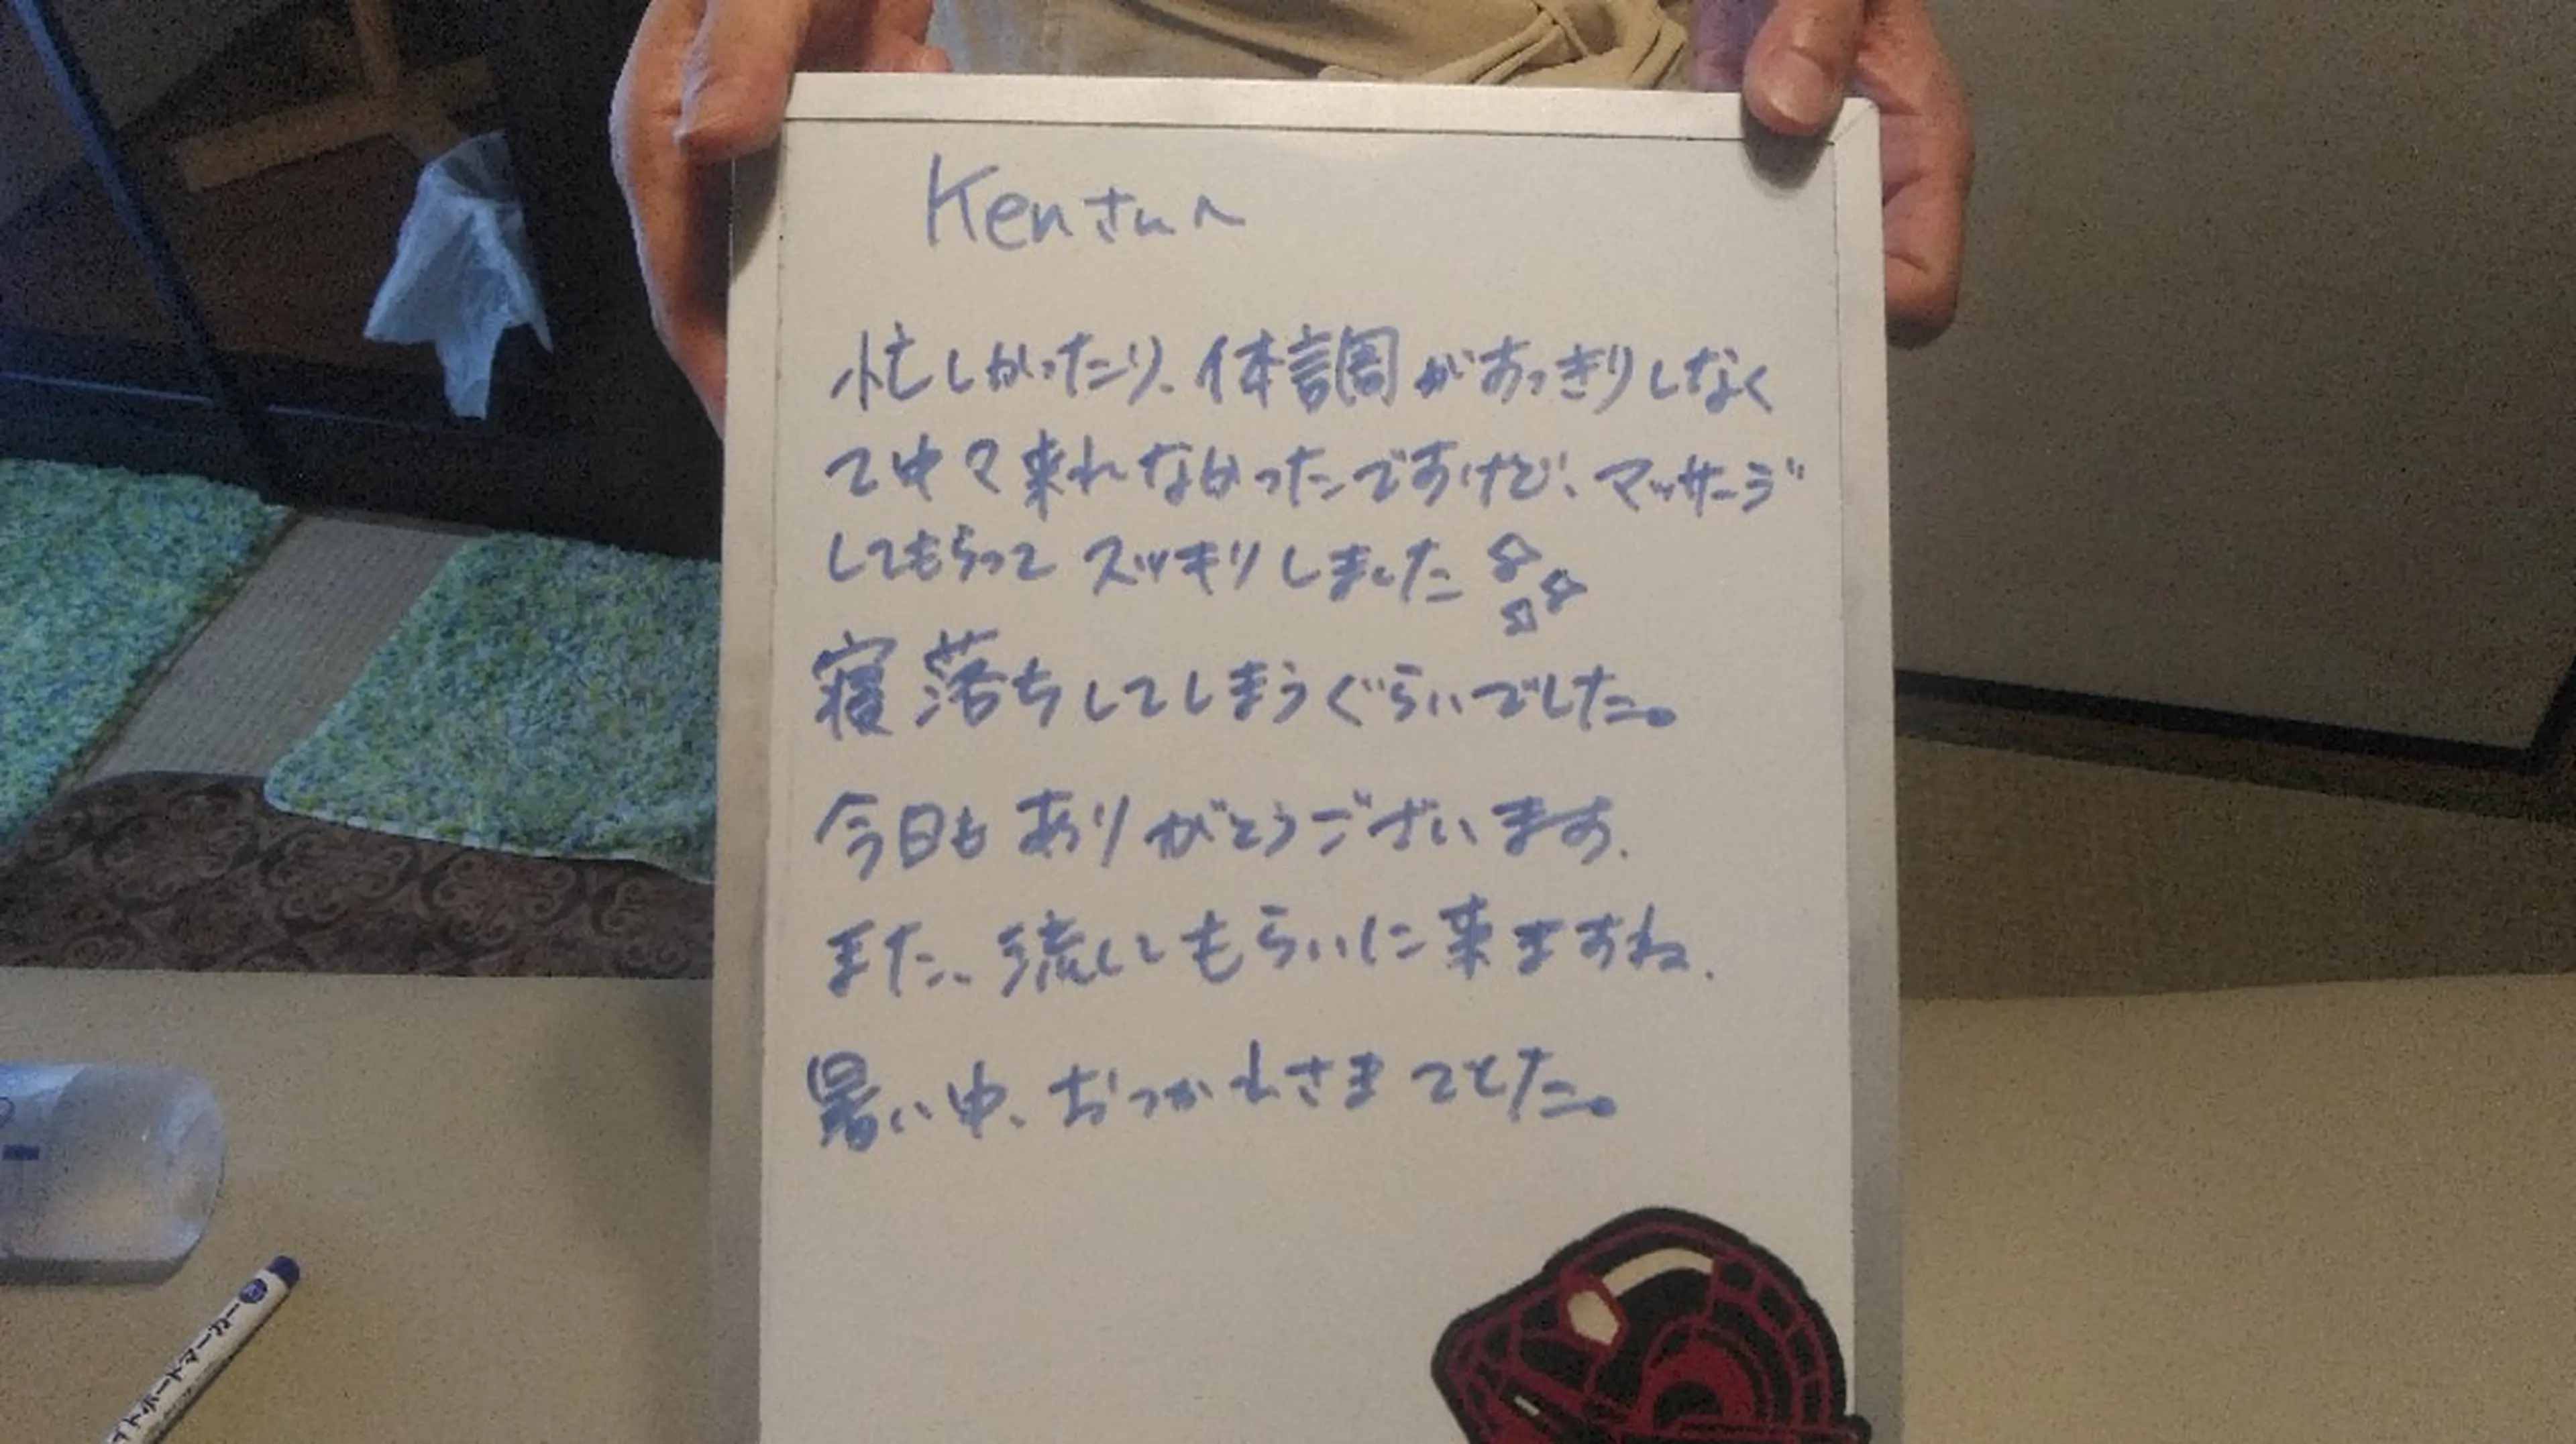 Kenさんへ
忙しかったり、体調がすっきりしなく
て中々来れなかったですけど、マッサージ
してもらって スッキリしました
寝落ちしてしまうぐらいでした。
今日も ありがとうございます.
また、流してもらいに来ますね.
暑い中、おつかれさまでした。
イトボードマーカー